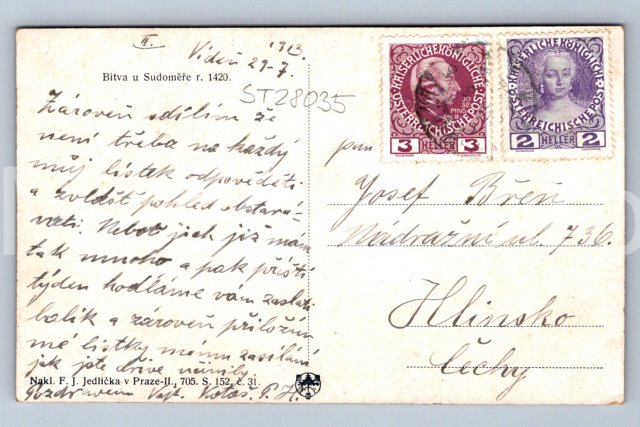 II.
1913
Vídeň 29-7.
Bitva u Sudoměře r. 1420.
ST28035
Zároveň sdílím že
není třeba na každý
můj lístek odpovědět
a zvlášť pohled obstará-
vati. Neboť jich již mám
tak mnoho a pak příští
týden hodláme vám zaslati
balík a zároveň přiložím
mé lístky mému zasílání
jak jste dříve
Nakl. F. J. Jedlička v Praze-II., 705. S. 152, č. 31.
Pozdravem P. H.
KAISERLICHE KÖNIGLICHE
ÖSTERREICHISCHE POST
3 HELLER 3
KAISERLICHE KÖNIGLICHE
ÖSTERREICHISCHE POST
2 HELLER 2
pan
Josef Břeň
Nádražní ul. 736.
Hlinsko
Čechy